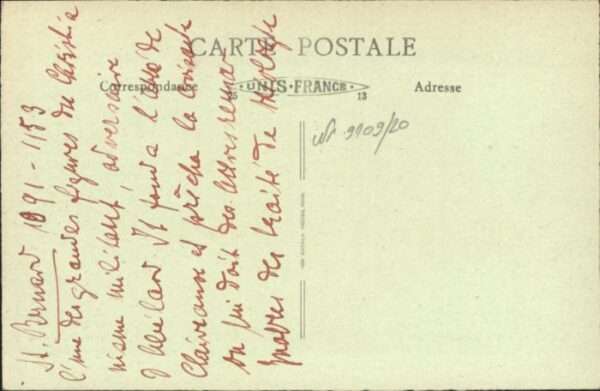 CARTE POSTALE
Correspondance
UNIS-FRANCE
13
Adresse
N° 9109/20
St. Bernard 1091-1153
l'une des grandes figures du Christia
nisme militant, adversaire
d'Abélard. Il fonda l'abb. de
Clairvaux et prêcha la croisade
on lui doit des
des traités de théologie